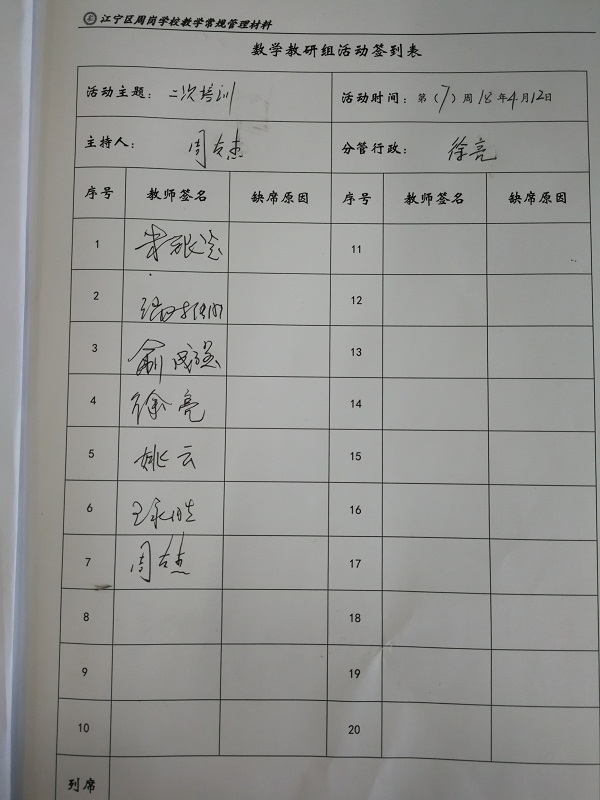 江宁区周岗学校教学常规管理材料
数学教研组活动签到表
活动主题：二次培训 活动时间：第（7）周 18年4月12日
主持人：周友杰 分管行政：徐亮
序号 教师签名 缺席原因 序号 教师签名 缺席原因
1 11
2 12
3 13
4 徐亮 14
5 姚云 15
6 王永胜 16
7 周友杰 17
8 18
9 19
10 20
列席